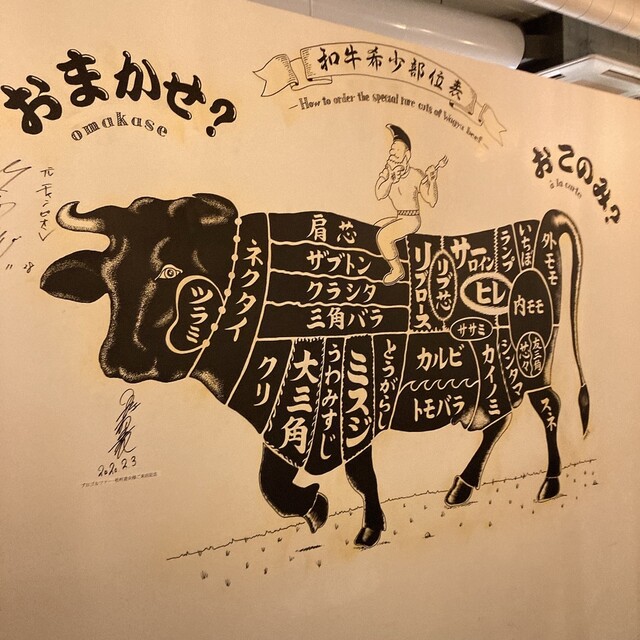 おまかせ?
omakase
和牛希少部位表
How to order the special rare cuts of Wagyu beef
おこのみ?
à la carte
ツラミ
ネクタイ
肩芯
ザブトン
クラシタ
三角バラ
リブロース
リブ芯
サーロイン
ヒレ
ササミ
ランプ
いちぼ
外モモ
内モモ
クリ
大三角
うわみすじ
ミスジ
とうがらし
カルビ
トモバラ
カイノミ
シンタマ
スネ
2020.2.3